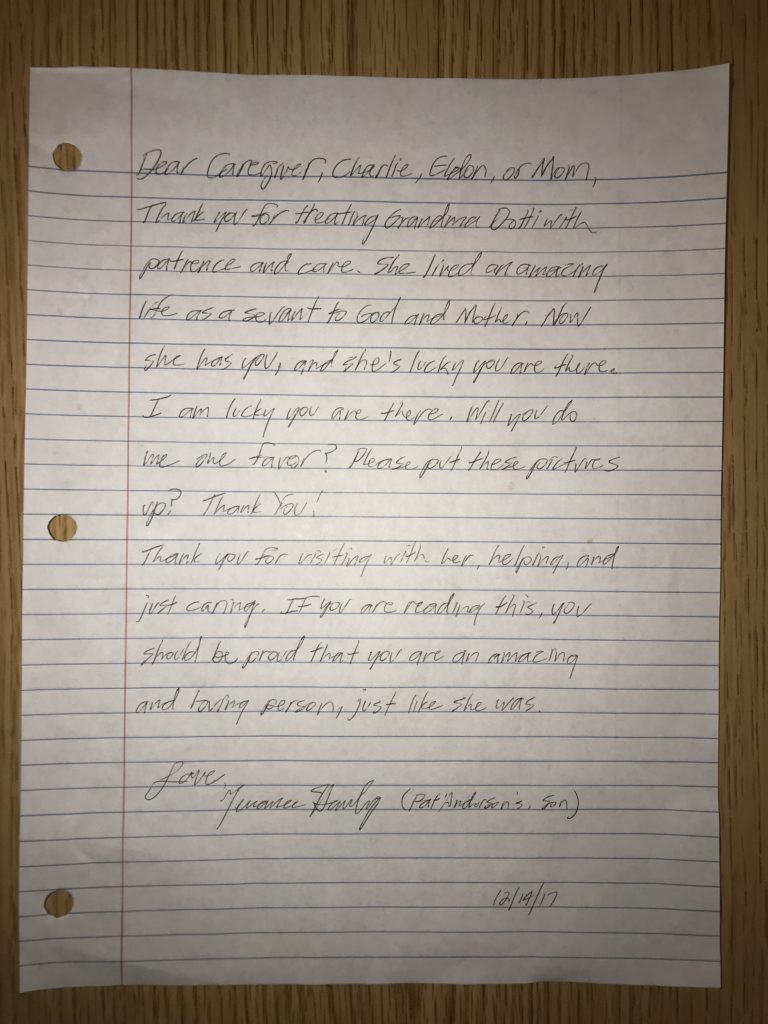 Dear Caregiver, Charlie, Eldon, or Mom,
Thank you for treating Grandma Dotti with
patience and care. She lived an amazing
life as a sevant to God and Mother. Now
she has you, and she's lucky you are there.
I am lucky you are there. Will you do
me one favor? Please put these pictures
up? Thank You!
Thank you for visiting with her, helping, and
just caring. If you are reading this, you
should be proud that you are an amazing
and loving person, just like she was.
Love,
(Pat Anderson's, Son)
12/14/17